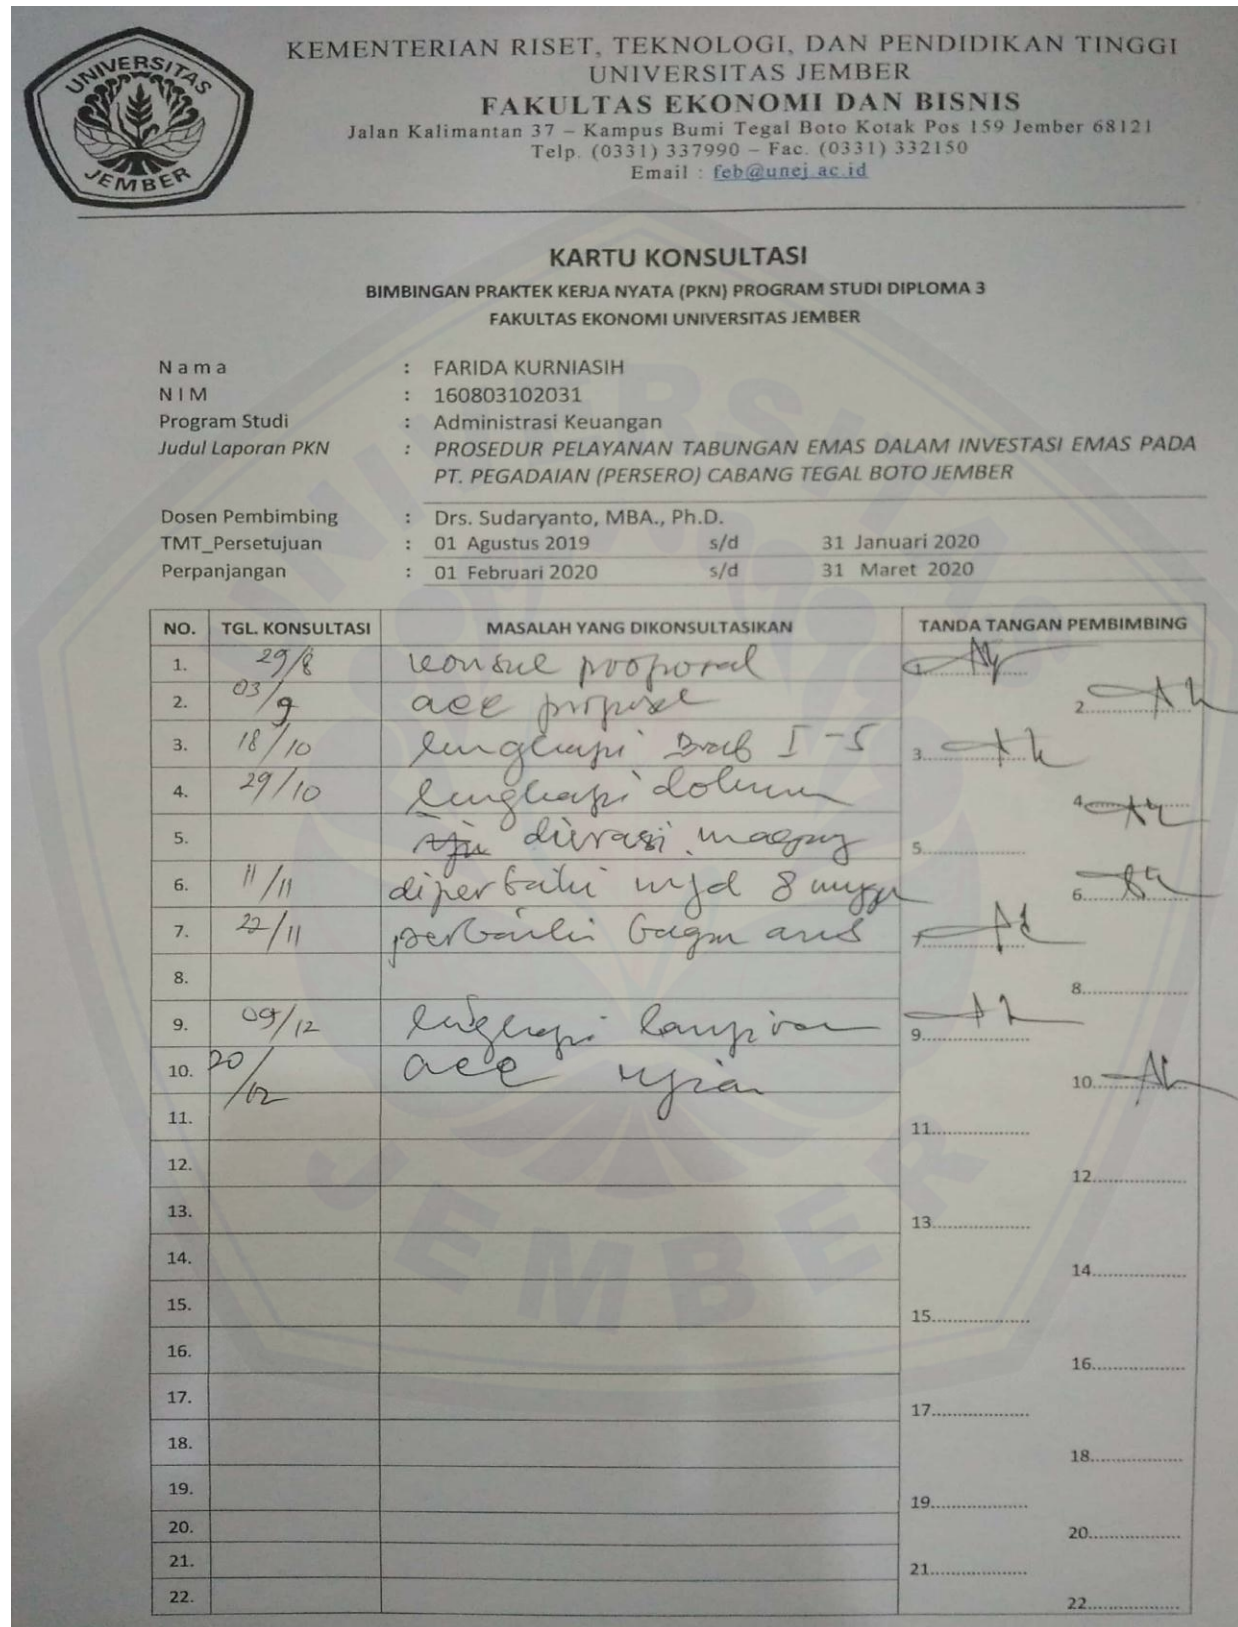 UNIVERSITAS JEMBER
KEMENTERIAN RISET, TEKNOLOGI, DAN PENDIDIKAN TINGGI
UNIVERSITAS JEMBER
FAKULTAS EKONOMI DAN BISNIS
Jalan Kalimantan 37 – Kampus Bumi Tegal Boto Kotak Pos 159 Jember 68121
Telp. (0331) 337990 – Fac. (0331) 332150
Email : feb@unej.ac.id
KARTU KONSULTASI
BIMBINGAN PRAKTEK KERJA NYATA (PKN) PROGRAM STUDI DIPLOMA 3
FAKULTAS EKONOMI UNIVERSITAS JEMBER
N a m a : FARIDA KURNIASIH
N I M : 160803102031
Program Studi : Administrasi Keuangan
Judul Laporan PKN : PROSEDUR PELAYANAN TABUNGAN EMAS DALAM INVESTASI EMAS PADA
PT. PEGADAIAN (PERSERO) CABANG TEGAL BOTO JEMBER
Dosen Pembimbing : Drs. Sudaryanto, MBA., Ph.D.
TMT_Persetujuan : 01 Agustus 2019 s/d 31 Januari 2020
Perpanjangan : 01 Februari 2020 s/d 31 Maret 2020
NO. TGL. KONSULTASI MASALAH YANG DIKONSULTASIKAN TANDA TANGAN PEMBIMBING
1. 29/8 konsul proposal 1.
2. 03/9 acc proposal 2.
3. 18/10 lengkapi Bab I - 5 3.
4. 29/10 lengkapi 4.
5. durasi magang 5.
6. 11/11 diperbaiki mjd 8 minggu 6.
7. 22/11 perbaiki bagan arus 7.
8. 8.
9. 09/12 lengkapi lampiran 9.
10. 20/12 acc ujian 10.
11. 11.
12. 12.
13. 13.
14. 14.
15. 15.
16. 16.
17. 17.
18. 18.
19. 19.
20. 20.
21. 21.
22. 22.